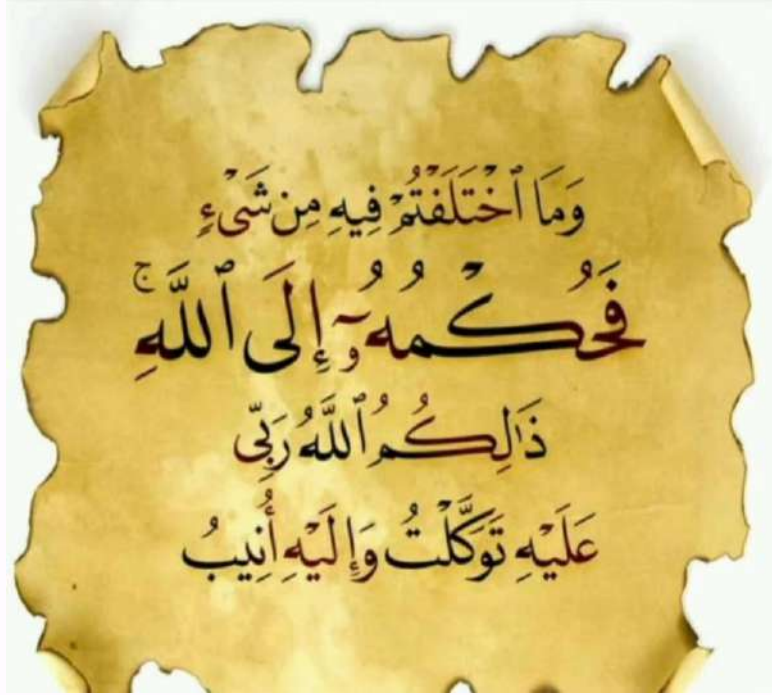 وَمَا ٱخْتَلَفْتُمْ فِيهِ مِن شَىْءٍ
فَحُكْمُهُۥٓ إِلَى ٱللَّهِ ۚ
ذَٰلِكُمُ ٱللَّهُ رَبِّى
عَلَيْهِ تَوَكَّلْتُ وَإِلَيْهِ أُنِيبُ